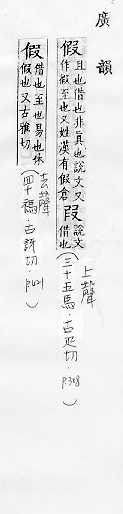 廣韻
假
且也借也非真也說文又
作徦至也又姓漢有假倉
叚
說文
借也
(三十五馬·古疋切·P308)
上聲
假
借也至也易也休
假也又古雅切
(四十禡·古訝切·P421)
去聲